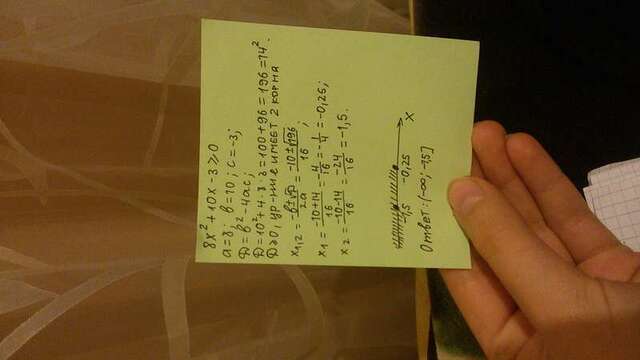 8x² + 10x - 3 ⩾ 0
a = 8; в = 10; c = -3;
D = в² - 4ac;
D = 10² + 4 · 8 · 3 = 100 + 96 = 196 = 14².
D > 0, ур-ние имеет 2 корня
x1,2 = (-в ± √D)/2a = (-10 ± √196)/16;
x1 = (-10+14)/16 = -4/16 = -1/4 = -0,25;
x2 = (-10-14)/16 = -24/16 = -1,5.
-1,5 -0,25 x
Ответ: (-∞; -1,5]